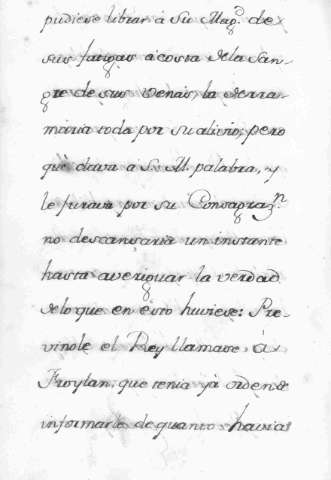 pudiese librar à Su Mag.d de
sus fatigas à costa de la San-
gre de sus venas, la derra-
maria toda por su alivio; pero
que dava à S. M. palabra, y
le jurava por su Consagraz.n
no descansaria un instante
hasta averiguar la verdad
de lo que en esto huviese: Pre-
vinole el Rey llamase à
Froylan, que tenia yà orden de
informarle de quanto havia